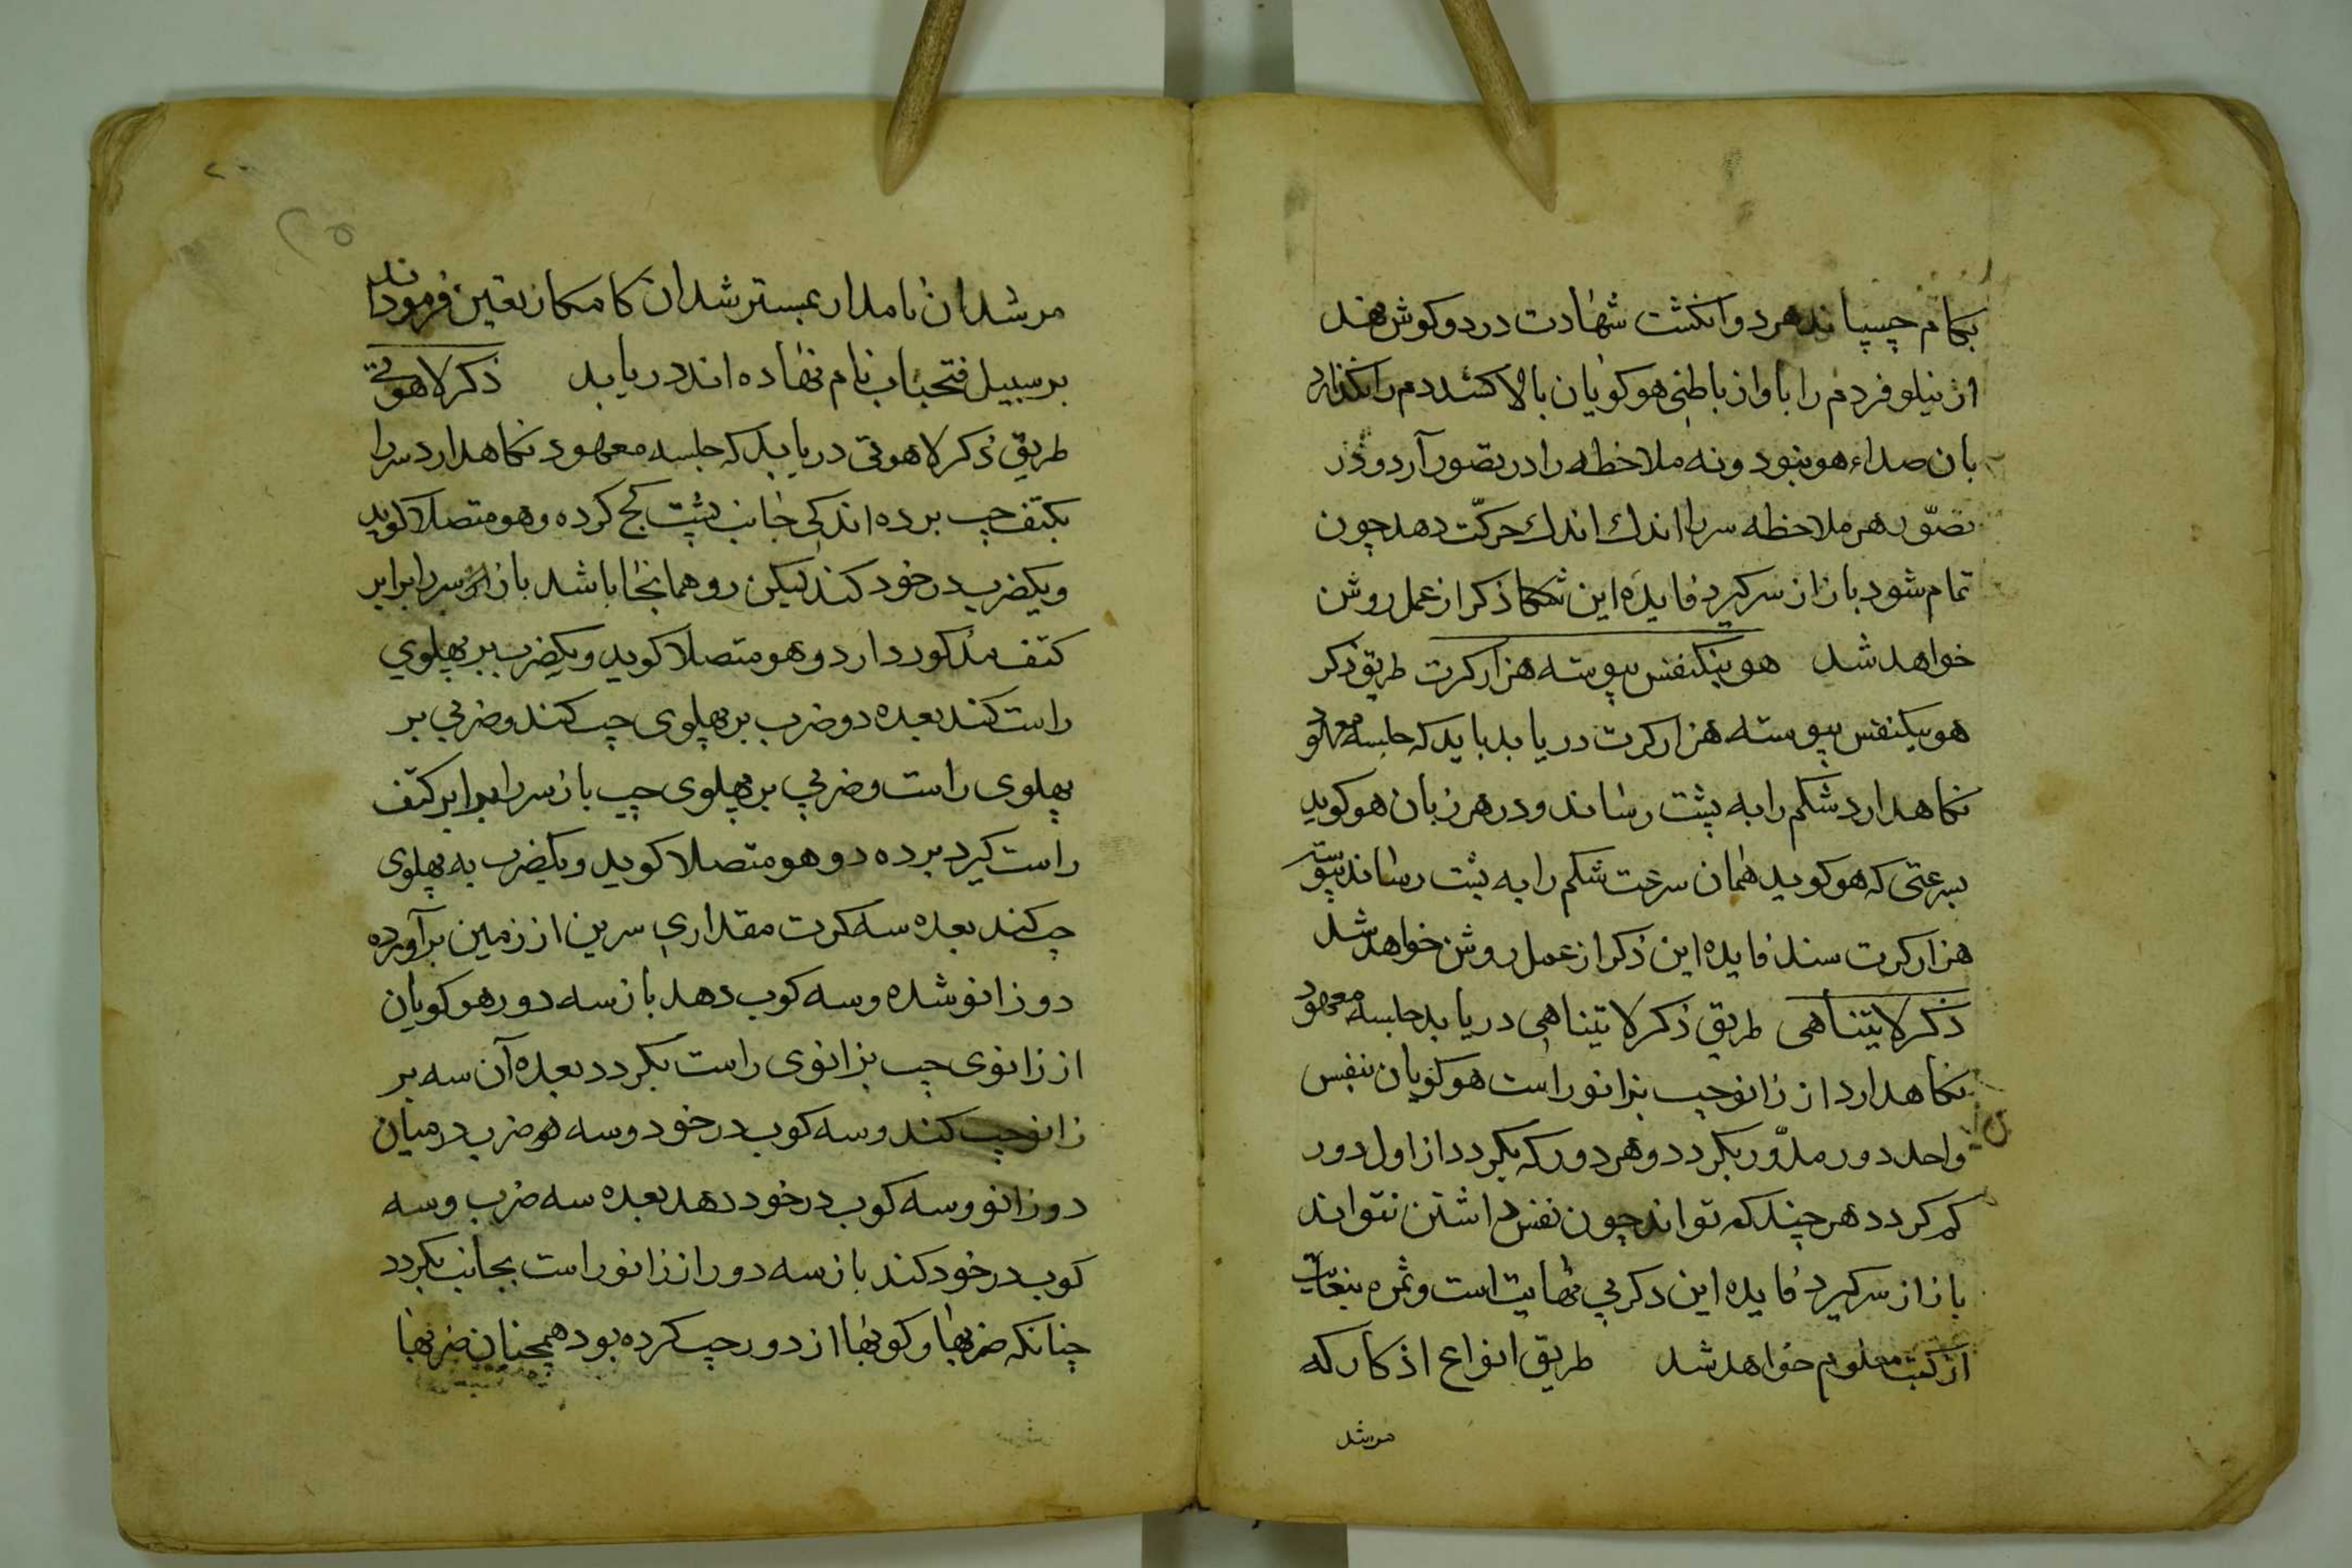 بکام چسپاند هردو انکشت شهادت در دو کوش نهند
از نیلوفر دم را باواز باطنی هو کویان بالا کشد دم را نکذارد
بان صداء هو بنود ونه ملاخظه را در تصور آرد و در
تصوّر هر ملاحظه سر را اندك اندك حرکّت دهد چون
تمام شود باز از سر کیرد فایده این ذکر از عمل روشن
خواهد شد هو بیکنفس پیوسته هزار کرت طریق ذکر
هو بیکنفس پیوسته هزار کرت دریابد باید که جلسه معهود
نکاهدارد شکم را به پشت رساند و در هر زبان هو کوید
بسرعتی که هو کوید همان سرعت شکم را به پشت رساند پیوسته
هزار کرت سند فایده این ذکر از عمل روشن خواهد شد
ذکر لایتناهی طریق ذکر لایتناهی دریابد جلسه معهود
نکاهدارد از زانو چپ بزانو راست هو کویان بنفس
واحد دور مدّور بکردد و هر دور که بکردد از اول دور
کم کردد هر چند که تواند چون نفس داشتن نتواند
باز از سر کیرد فایده این ذکر بی نهایت است و ثمره بیغایت
از کتب معلوم خواهد شد طریق انواع اذکار که
مرشد
مرشدان نامدار بمسترشدان کامکار تعین فرموده‌اند
بر سبیل فتحباب نام نهاده اند دریابد ذکر لاهوتی
طریق ذکر لاهوتی دریابد که جلسه معهود نکاهدارد سر را
بکتف چپ برده اندکی جانب پشت کج کرده و هو متصلا کوید
و یکضرب در خود کند لیکن رو همانجا باشد باز سر را برابر
کتف مذکور دارد و هو متصلا کوید و یکضرب بر پهلوي
راست کند بعده دو ضرب بر پهلوی چپ کند و ضربی بر
پهلوی راست و ضربی بر پهلوی چپ باز سر را برابر کتف
راست کیرد برده دو هو متصلا کوید و یکضرب به پهلوی
چپ کند بعده سه کرت مقداری سرین از زمین برآورده
دو زانو شده و سه کوب دهد باز سه دور هو کویان
از زانوی چپ بزانوی راست بکردد بعده آن سه بر
زانو چپ کند و سه کوب در خود و سه هو ضرب در میان
دو زانو و سه کوب در خود دهد بعده سه ضرب و سه
کوب در خود کند باز سه دور از زانو راست بجانب بکردد
چنانکه ضربها و کوبها از دور چپ کرده بود همچنان ضربها